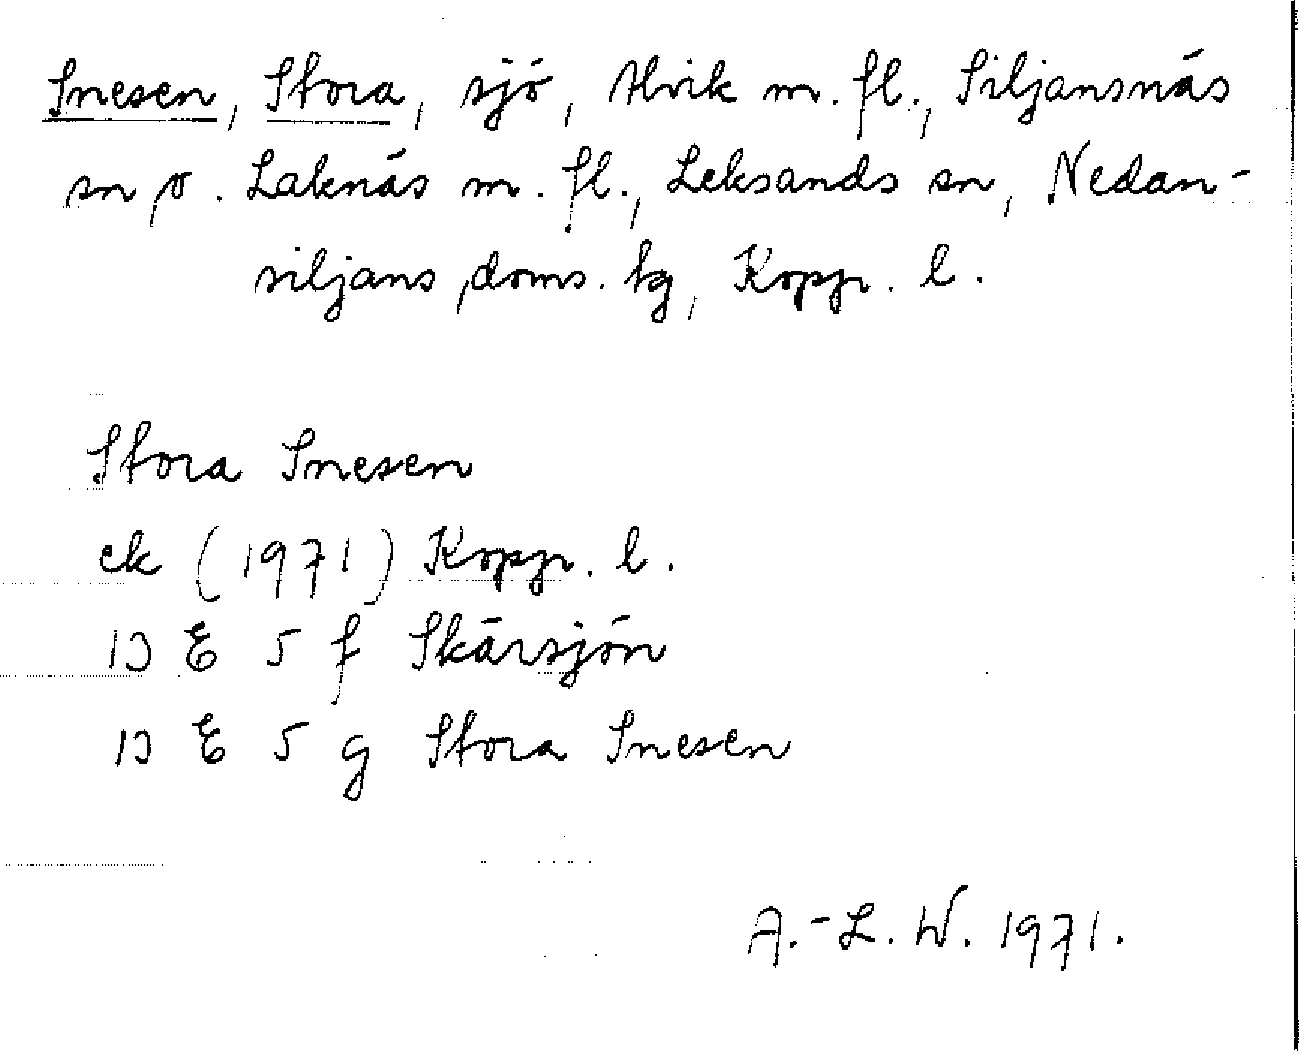 Snesen, Stora, sjö, Alvik m. fl., Siljansnäs
sn o. Laknäs m. fl., Leksands sn, Nedan-
siljans doms. tg, Kopp. l.
Stora Snesen
ek (1971) Kopp. l.
13 E 5 f Skärsjön
13 E 5 g Stora Snesen
A.-L. W. 1971.